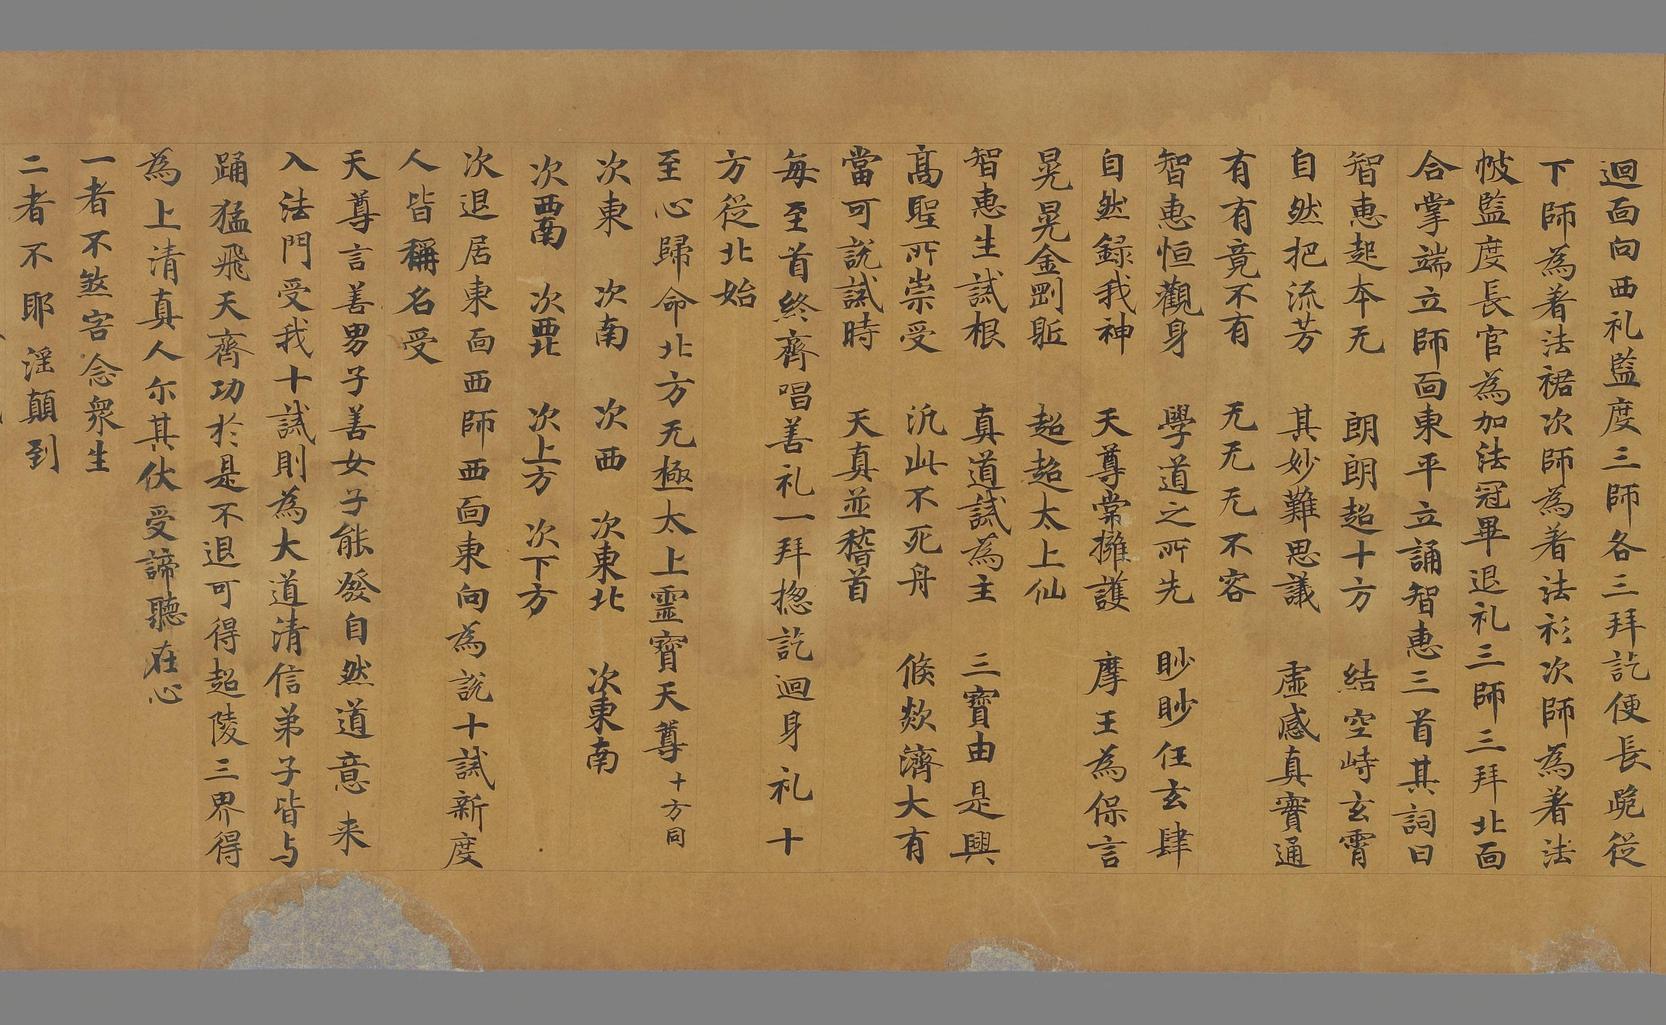 迴面向西礼監度三師各三拜訖便長跪從
下師為著法裙次師為著法衫次師為著法
帔監度長官為加法冠畢退礼三師三拜北面
合掌端立師面東平立誦智惠三首其詞曰
智惠起本无　朗朗超十方　結空峙玄霄
自然把流芳　其妙難思議　虛感真實通
有有竟不有　无无无不容
智惠恒觀身　學道之所先　眇眇任玄肆
自然錄我神　天尊常擁護　摩王為保言
晃晃金剛軀　超超太上仙
智惠生試根　真道試為主　三寶由是興
高聖所崇受　汎此不死舟　倏欻濟大有
當可說試時　天真並稽首
每至首終齊唱善礼一拜揔訖迴身礼十
方從北始
至心歸命北方无極太上靈寶天尊十方同
次東　次南　次西　次東北　次東南
次西南　次西北　次上方　次下方
次退居東面西師西面東向為說十試新度
人皆稱名受
天尊言善男子善女子能發自然道意来
入法門受我十試則為大道清信弟子皆与
踊猛飛天齊功於是不退可得超陵三界得
為上清真人尒其伏受諦聽在心
一者不煞害念衆生
二者不耶淫顛到